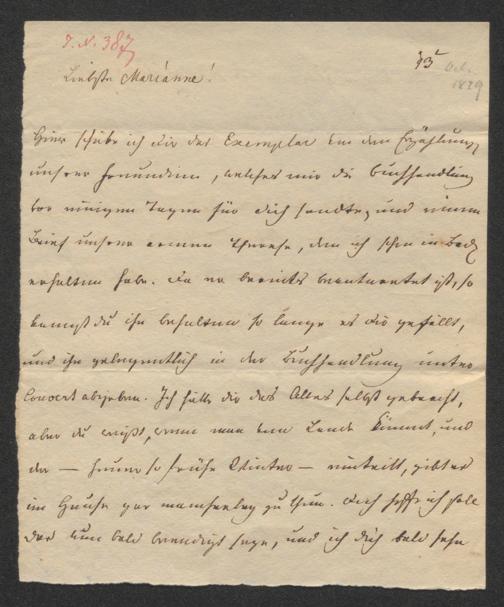 I. N. 387
13ᵗ Oct.
1829
Liebste Marianne!
Hier schicke ich dir das Exemplar von den Erzählungen
unsrer Freundinn, welches mir die Buchhandlung
vor einigen Tagen für dich sandte, und einen
Brief unsrer armen Therese, den ich schon in Baden
erhalten habe. Da er bereits beantwortet ist, so
kannst du ihn behalten so lange es dir gefällt,
und ihn gelegentlich in der Buchhandlung unter
Couvert abgeben. Ich hätte dir das Alles selbst gebracht,
aber du weißt, wenn man vom Lande kömmt, und
der — heuer so frühe Winter — eintritt, gibt es
im Hause gar mancherley zu thun. Doch hoffe ich soll
das nun bald beendigt seyn, und ich dich bald sehn